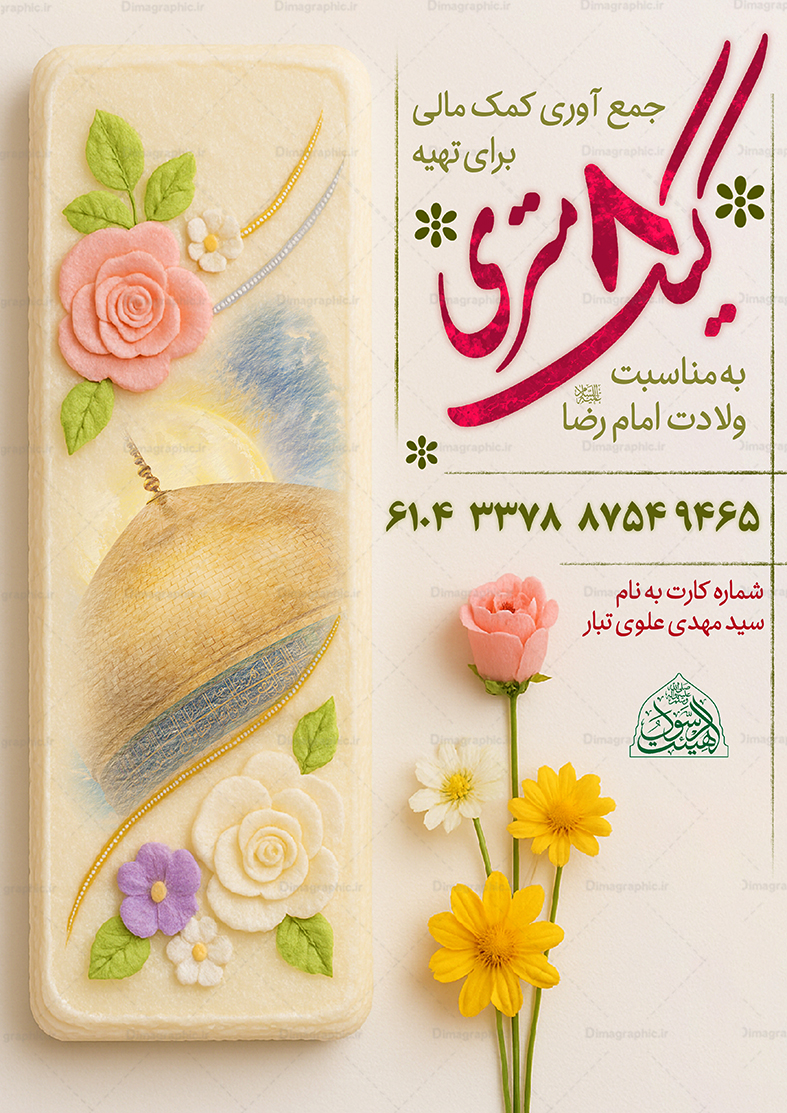 جمع آوری کمک مالی
برای تهیه
کیک ۸ متری
به مناسبت
ولادت امام رضا علیه السلام
۶۱۰۴ ۳۳۷۸ ۸۷۵۴ ۹۴۶۵
شماره کارت به نام
سید مهدی علوی تبار
هیئت الرسول
Dimagraphic.ir